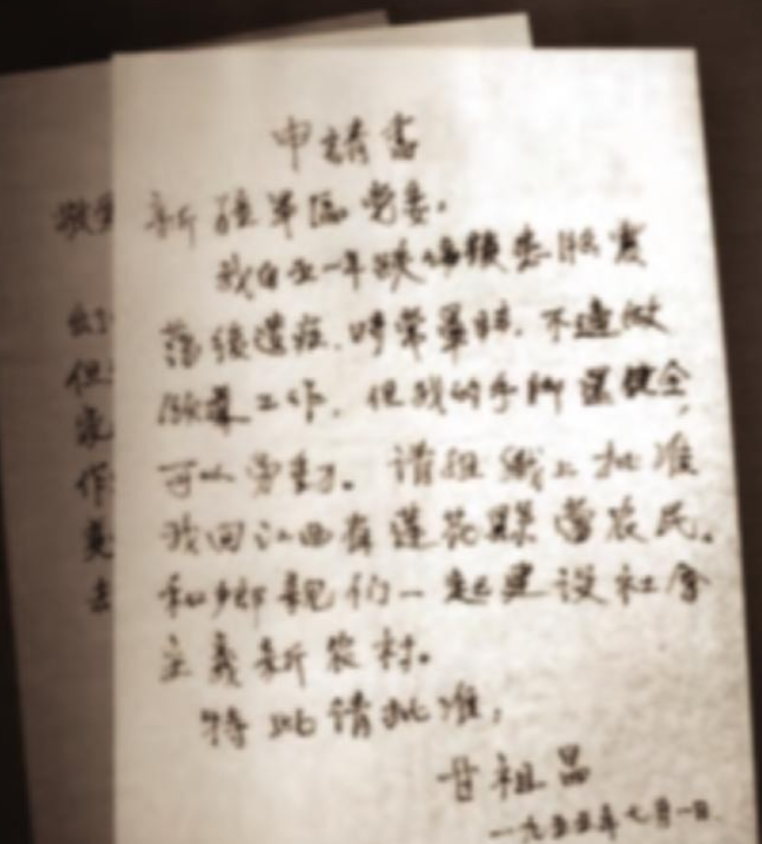 申请书
新疆军区党委.
我自五一年跌伤頭患脑震
荡後遗症.時常暈眩.不适做
领導工作.但我的手脚還健全,
可以劳動。请组織上批准
我回江西省莲花縣當农民。
和鄉親们一起建设社会
主義新农村。
特此请批准,
甘祖昌
一九五五年七月一日
但
作